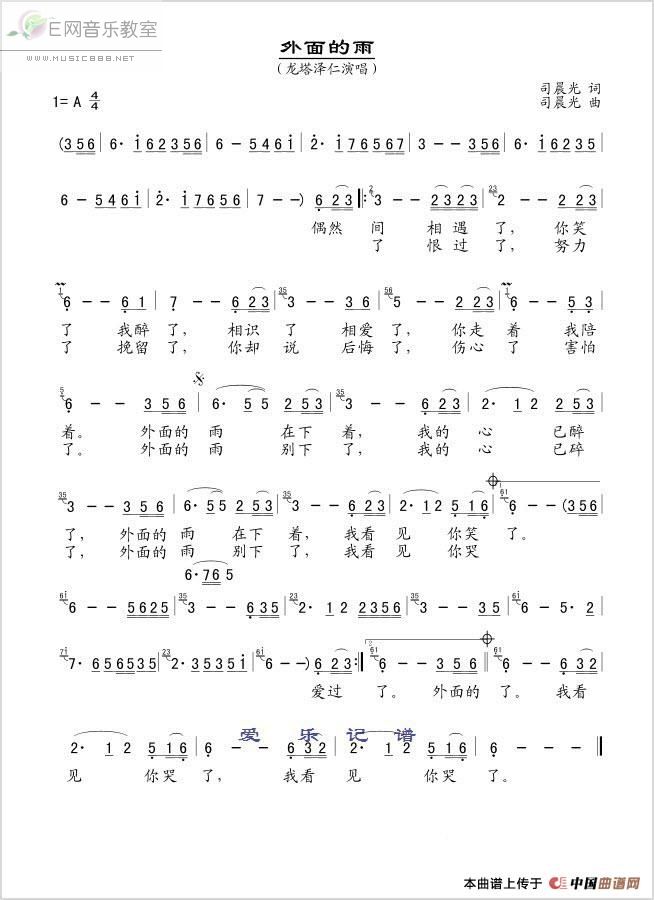 E网音乐教室
www.music888.net
外面的雨
（龙塔泽仁演唱）
司晨光 词
1= A 4/4
司晨光 曲
(3 5 6 | 6· i 6 2 3 5 6 | 6 - 5 4 6 i | 2· i 7 6 5 6 7 | 3 - - 3 5 6 | 6· i 6 2 3 5
6 - 5 4 6 i | 2· i 7 6 5 6 | 7 - -) 6 2 3 |: 3 - - 2 3 2 3 | 2 - - 2 2 3 |
偶然 间 相遇 了， 你笑
了 恨过 了， 努力
6 - - 6 1 | 7 - - 6 2 3 | 3 - - 2 2 3 | 5 - - 2 2 3 | 6 - - 5 3 |
了 我醉 了， 相识 了 相爱 了， 你走 着 我陪
了 挽留 了， 你却 说 后悔 了， 伤心 了 害怕
6 - - 3 5 6 | 6· 5 5 2 5 3 | 3 - - 6 2 3 | 2· 1 2 2 5 3 |
着。 外面的 雨 在下 着， 我的 心 已醉
了。 外面的 雨 别下 了， 我的 心 已碎
3 - - 3 5 6 | 6· 5 5 2 5 3 | 3 - - 2 2 3 | 2· 1 2 5 1 6 | 6 - - (3 5 6
了， 外面的 雨 在下 着， 我看 见 你笑 了。
了， 外面的 雨 别下 了， 我看 见 你哭
6· 7 6 5
6 - - 5 6 2 5 | 3 - - 6 3 5 | 2· 1 2 2 3 5 6 | 3 - - 3 5 | 6 - 5· 2 |
7· 6 5 6 5 3 5 | 2· 3 5 3 5 i | 6 - -) 6 2 3 :| 6 - - 3 5 6 || 6 - - 6 3 2 |
爱过 了。 外面的 了。 我看
2· 1 2 5 1 6 | 6 - - 6 3 2 | 2· 1 2 6 1 6 | 6 - - - ||
爱 乐 记 谱
见 你哭 了， 我看 见 你哭 了。
本曲谱上传于 中国曲谱网